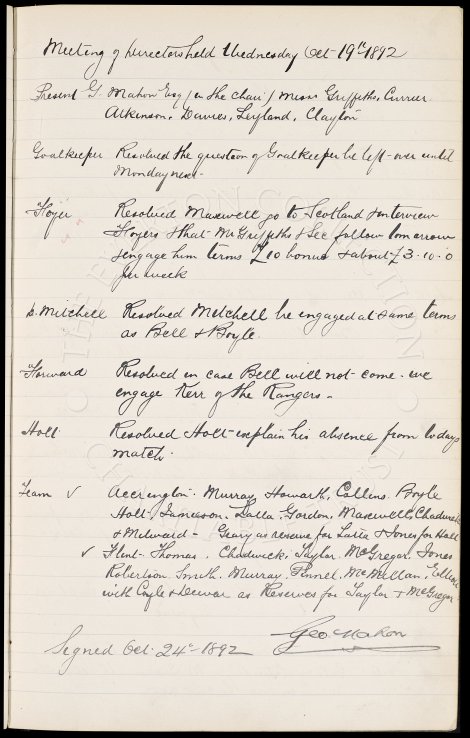 Meeting of Directors held Wednesday Oct 19th 1892
Present G. Mahon Esq (in the Chair) Messrs Griffiths, Currier
Atkinson, Davies, Leyland, Clayton
Goalkeeper Resolved the question of Goalkeeper be left over until
Monday next.
Foyer Resolved Maxwell go to Scotland & interview
Foyers & that Mr Griffiths & Sec follow tomorrow
& engage him terms £10 bonus & about £3.10.0
per week
D. Mitchell Resolved Mitchell be engaged at same terms
as Bell & Boyle.
Forward Resolved in case Bell will not come we
engage Kerr of the Rangers.
Holt Resolved Holt explain his absence from to days
match.
Team ✓ Accrington. Murray, Howarth, Collins. Boyle
Holt, Jamieson, Latta. Gordon, Maxwell, Chadwick
& Milward - Geary as reserve for Latta & Jones for Holt
✓ Flint. Thomas, Chadwick, Taylor, McGregor, Jones
Robertson, Smith, Murray, Pinnel, McMillan, Elliott
with Coyle & Dewar as Reserves for Taylor & McGregor
Geo Mahon
Signed Oct. 24th 1892